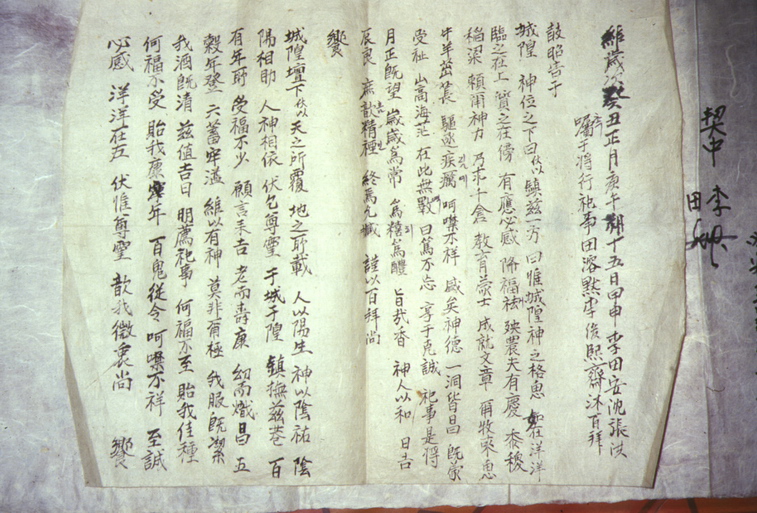 維歲次癸丑正月庚午朔十五日甲申李田安沈張洪
囑于將行祀事田溶默李俊熙齋沐百拜
敢昭告于
城隍 神位之下曰伏以鎮玆一方 曰惟城隍神之格思 如在洋洋
臨之在上 質之在傍 有應必感 降福祛殃農夫有慶 黍稷
稻梁 賴爾神力 乃求千倉 教育蒙士 成就文章 爾牧來思
牛羊茁長 驅逐疾癘 呵噤不祥 盛矣神德 一洞皆昌 旣蒙
受祉 山高海茫 在此無斁 曰篤不忘 享于克誠 祀事是將
月正旣望 歲歲爲常 爲酒爲醴 旨哉香 神人以和 日吉
辰良 庶歆精禋 終焉允臧 謹以百拜尚
饗
城隍壇下伏以 天之所覆 地之所載 人以陽生 神以陰祐 陰
陽相助 人神相依 伏乞尊靈 于城于隍 鎮撫玆巷 百
有年所 受福不少 顧言采吉 老而壽康 幼而熾昌 五
穀年登 六蓄牢溢 維以有神 莫非爾極 我服旣潔
我酒旣清 玆值吉日 明薦祀事 何福不至 貽我佳種
何福不受 貽我康年 百鬼從令 呵噤不祥 至誠
必感 洋洋在左 伏惟尊靈 歆我微衷尚 饗
契中 李
田